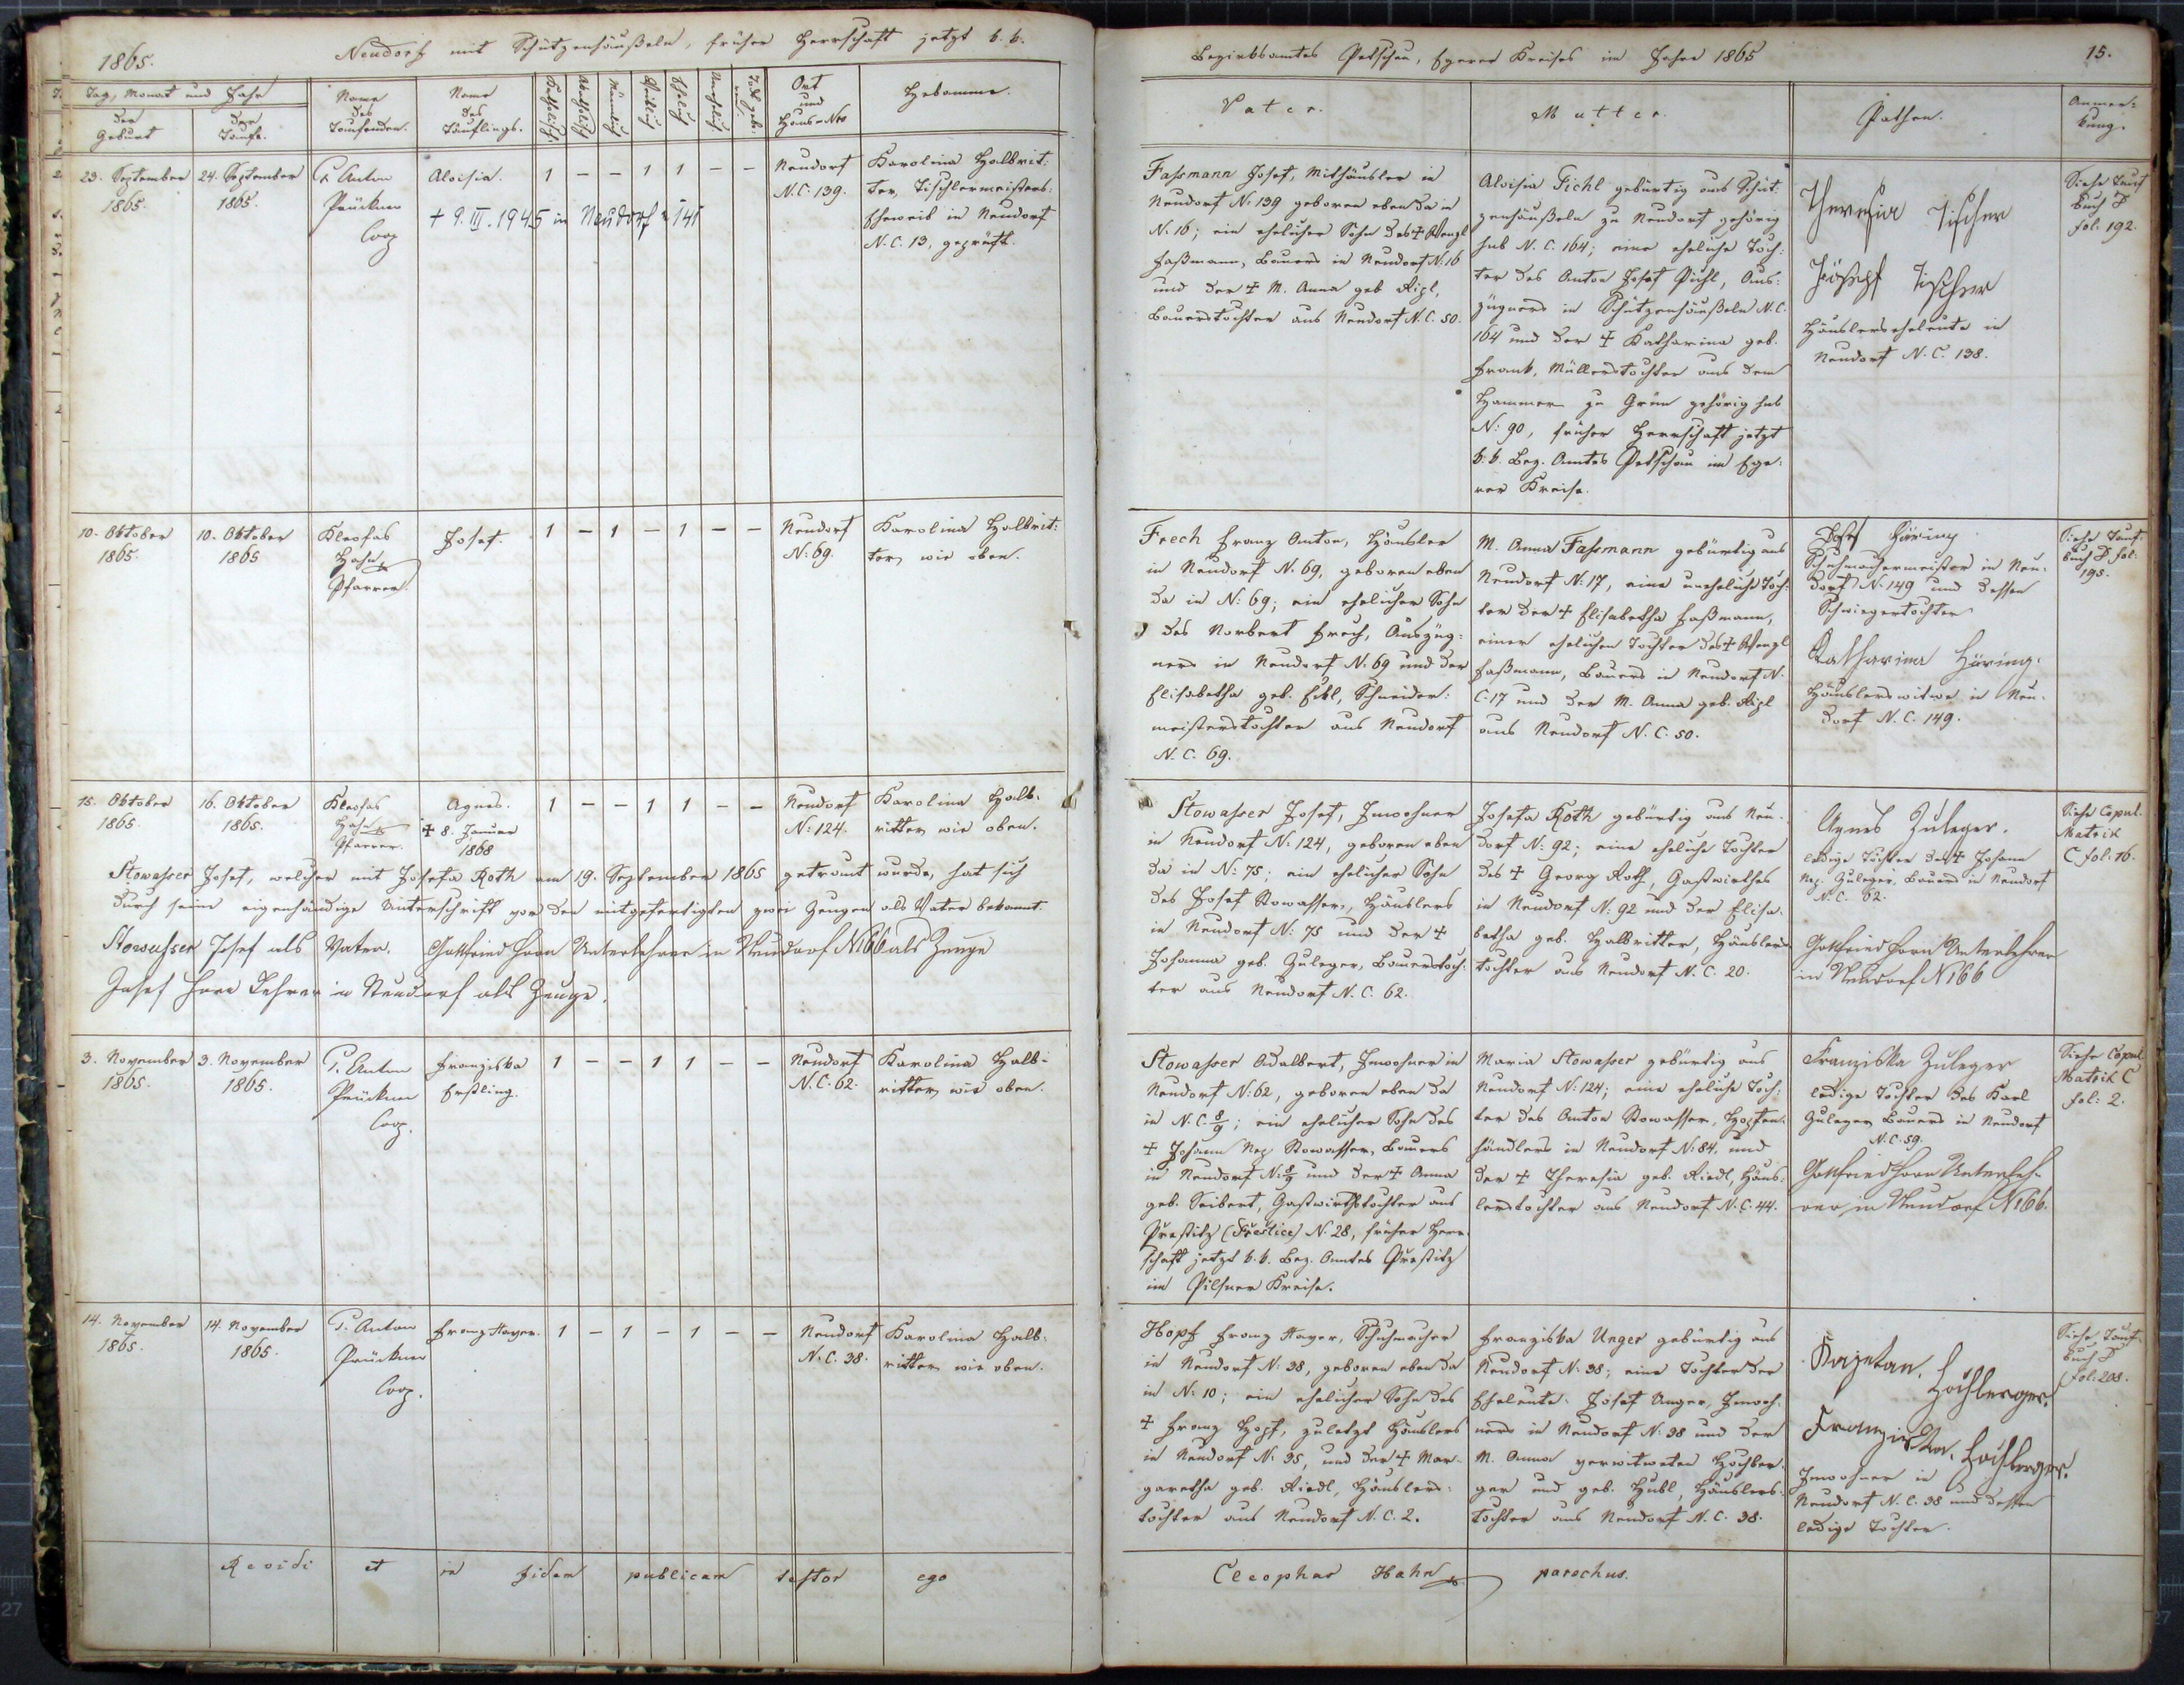 1865.
Neudorf mit Schützenhäußeln, früher Herrschaft jetzt k. k.
Tag, Monat und Jahr
der Geburt
der Taufe.
Name des Taufenden.
Name des Täuflings.
Katholisch
Männlich
Weiblich
Ehelich
Unehelich
Ort und Haus-Nro
Hebamme.
23. September 1865.
24. September 1865.
P. Anton
Prückner
Coop
Aloisia.
+ 9. III. 1945 in Neudorf 141
1 – – 1 1 – –
Neudorf
N.C. 139.
Karolina Halbrit:
ter, Tischlermeisters:
Eheweib in Neudorf
N.C. 13, geprüft.
10. Oktober 1865.
10. Oktober 1865
Kleofas
Hahn
Pfarrer.
Josef.
1 – 1 – 1 – –
Neudorf
N: 69.
Karolina Halbrit:
ter, wie oben.
15. Oktober 1865.
16. Oktober 1865.
Kleofas
Hahn
Pfarrer.
Agnes.
+ 8. Januar
1868
1 – – 1 1 – –
Neudorf
N: 124.
Karolina Halb-
ritter wie oben.
Stowasser Josef, welcher mit Josefa Roth am 19. September 1865 getraut wurde, hat sich
durch seine eigenhändige Unterschrift vor den mitgefertigten zwei Zeugen als Vater bekannt.
Stowasser Josef als Vater. Gottfried Horn Unterlehrer in Neudorf N166 als Zeuge
Josef Horn Lehrer in Neudorf als Zeuge.
3. November 1865.
3. November 1865.
P. Anton
Prückner
Coop.
Franziska
Erstling.
1 – – 1 1 – –
Neudorf
N.C. 62.
Karolina Halb-
ritter, wie oben.
14. November 1865.
14. November 1865.
P. Anton
Prückner
Coop.
Franz Xaver.
1 – 1 – 1 – –
Neudorf
N.C. 38.
Karolina Halb:
ritter wie oben.
Revidi et in fidem publicam testor ego
Bezirksamtes Petschau, Egerer Kreises im Jahre 1865
15.
Vater.
Mutter.
Pathen.
Anmer:
kung.
Fassmann Josef, Mithäusler in
Neudorf N: 139 geboren eben da in
N. 16; ein ehelicher Sohn des + Wenzl
Faßmann, Bauers in Neudorf N: 16
und der + M. Anna geb.
Bauerstochter aus Neudorf N.C. 50.
Aloisia Pichl gebürtig aus Schüt
zenhäußeln zu Neudorf gehörig
sub N.C. 164; eine eheliche Toch:
ter des Anton Josef Pichl, Aus:
züglers in Schützenhäußeln N.C.
164 und der + Katharina geb.
Frank, Müllerstochter aus dem
Hammer zu Grün gehörig sub
N: 90, früher Herrschaft jetzt
k. k. Bez. Amtes Petschau im Ege:
rer Kreise.
Theresia Tischer
Joseph Tischer
Häuslerseheleute in
Neudorf N.C. 138.
Siehe Tauf
buch D
fol. 192.
Frech Franz Anton, Häusler
in Neudorf N. 69, geboren eben
da in N: 69; ein ehelicher Sohn
des Norbert Frech, Auszüg:
lers in Neudorf N. 69 und der
Elisabetha geb. Eckl, Schneider:
meisterstochter aus Neudorf
N.C. 69.
M. Anna Fassmann gebürtig aus
Neudorf N. 17, eine uneheliche Toch:
ter der + Elisabetha Faßmann,
einer ehelichen Tochter des + Wenzl
Faßmann, Bauers in Neudorf N.
C. 17 und der M. Anna geb.
aus Neudorf N.C. 50.
Josef Häring
Schuhmachermeister in Neu-
dorf N. 149 und dessen
Schwiegertochter
Katharina Häring.
Häuslerswitwe in Neu-
dorf N.C. 149.
Siehe Tauf-
buch D fol:
195.
Stowasser Josef, Inwohner
in Neudorf N: 124, geboren eben
da in N: 75; ein ehelicher Sohn
des Josef Stowasser, Häuslers
in Neudorf N: 75 und der +
Johanna geb. Zuleger, Bauerstoch:
ter aus Neudorf N.C. 62.
Josefa Roth gebürtig aus Neu-
dorf N: 92; eine eheliche Tochter
des + Georg Roth, Gastwirthes
in Neudorf N: 92 und der Elisa-
betha geb. Halbritter, Häuslers
tochter aus Neudorf N.C. 20.
Agnes Zuleger.
ledige Tochter des + Johann
Nep. Zuleger, Bauers in Neudorf
N.C. 62.
Gottfried Horn Unterlehrer
in Neudorf N166
Siehe Copul.
Matrik
C. fol. 16.
Stowasser Adalbert, Inwohner in
Neudorf N: 62, geboren eben da
in N.C. 8/9; ein ehelicher Sohn des
+ Johann Nep. Stowasser, Bauers
in Neudorf N: 8/9 und der + Anna
geb. Seibert, Gastwirthstochter aus
Prestitz (Přeštice) N. 28, früher Herr-
schaft jetzt k. k. Bez. Amtes Prestitz
im Pilsner Kreise.
Maria Stowasser gebürtig aus
Neudorf N: 124; eine eheliche Toch:
ter des Anton Stowasser, Hopfen-
händlers in Neudorf N: 84, und
der + Theresia geb. Riedl, Häus:
lerstochter aus Neudorf N.C. 44.
Franziska Zuleger
ledige Tochter des Karl
Zuleger Bauers in Neudorf
N.C. 59.
Gottfried Horn Unterleh-
rer in Neudorf N166.
Siehe Copul
Matrik C
fol: 2.
Hopf Franz Xaver, Schuhmacher
in Neudorf N: 38, geboren eben da
in N: 10; ein ehelicher Sohn des
+ Franz Hopf, zuletzt Häuslers
in Neudorf N: 35, und der + Mar-
garetha geb. Riedl, Häuslers:
tochter aus Neudorf N.C. 2.
Franziska Unger gebürtig aus
Neudorf N: 38; eine Tochter der
Eheleute: Josef Unger, Inwoh-
ners in Neudorf N: 38 und der
M. Anna verwitweten Hochber-
ger und geb. Hubl, Häuslers-
tochter aus Neudorf N.C. 38.
Kajetan. Hochberger.
Franziska. Hochberger.
Inwohner in
Neudorf N.C. 38 und dessen
ledige Tochter.
Siehe Tauf-
buch D
fol. 208.
Cleophas Hahn parochus.